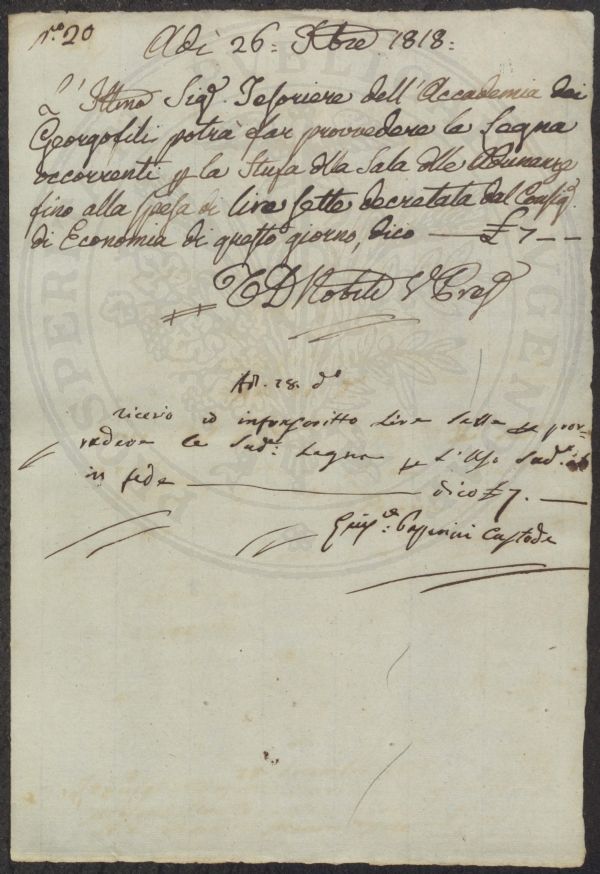 N.º 20
Adì 26 = Xbre 1818 =
L'Illmo Sig.r Tesoriere dell'Accademia dei
Georgofili potrà far provvedere la Legna
occorrenti p la Stufa della Sala delle Adunanze
fino alla spesa di lire sette decretata dal Consig.
di Economia di questo giorno, dico — £ 7 — —
D Nobili V. Pres.
Adì. 28. do
ricevo io infrascritto Lire sette p prov=
vedere la Sud.a Legna p L'Uso Sud.o
in fede — dico £ 7. —
Giusep.e Passerini Custode